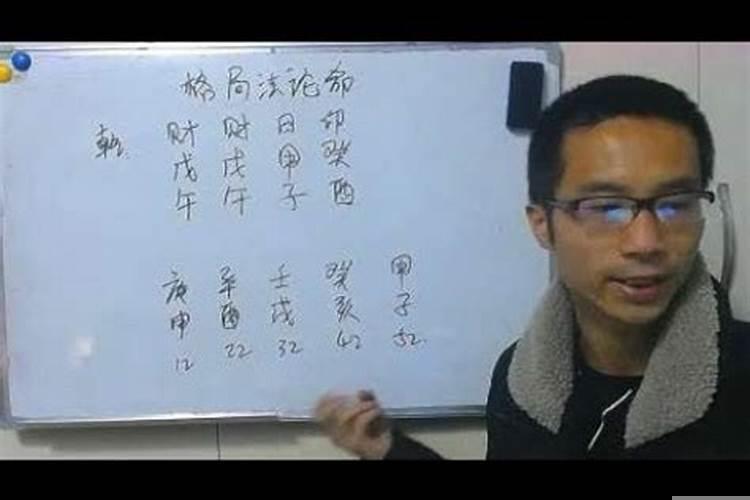 格局法论命
财 财 日 印
乾 戊 戊 甲 癸
午 午 子 酉
庚 辛 壬 癸 甲
申 酉 戌 亥 子
12 22 32 42 52